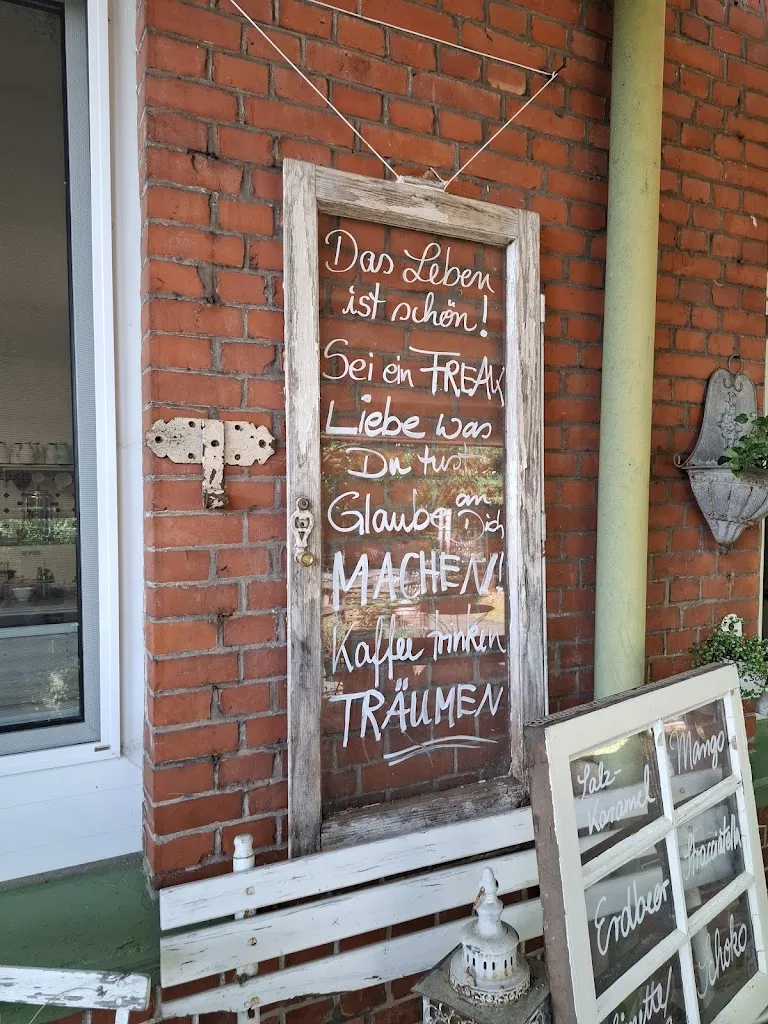 Das Leben
ist schön!
Sei ein FREAK
Liebe was
Du tust
Glaube an
Dich
MACHEN!
Kaffee trinken
TRÄUMEN
Salz-
Karamel
Mango
Erdbeer
Stracciatella
Schoko